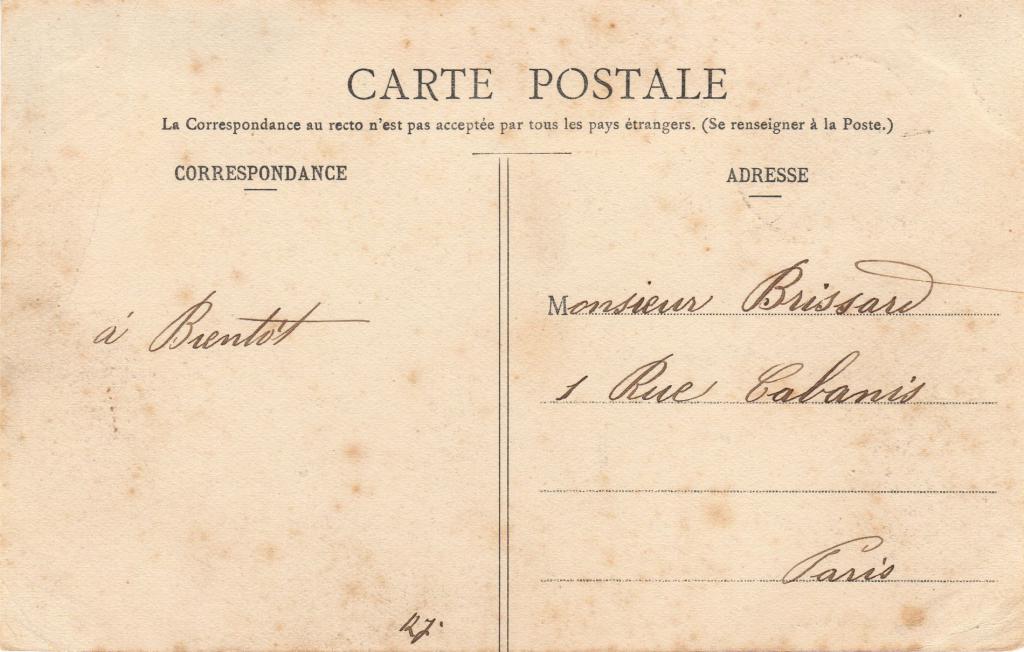 CARTE POSTALE
La Correspondance au recto n'est pas acceptée par tous les pays étrangers. (Se renseigner à la Poste.)
CORRESPONDANCE
à Bientôt
ADRESSE
Monsieur Brissard
1 Rue Cabanis
Paris